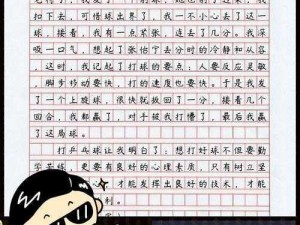 扣下去，可惜球出界了，我一不小心丢了这一
球，接着，我有一点紧张，连丢了几分。我深
吸一口气，想起了张怡宁丢分时的冷静和从容
，这时，我记起了打球的要点：人要反应灵敏
，脚步移动要快，打的速度也要快。于是我发
了一个上旋球，很快就扳回了一分，接着几个
回合，我都赢了，对手被我打懵了，最后我赢
了这局球。
打乒乓球让我明白了：想打好球不但要勤
学苦练，更要有良好的心理素质，只有树立坚
心，才能发挥出良好的技术，才能
利。